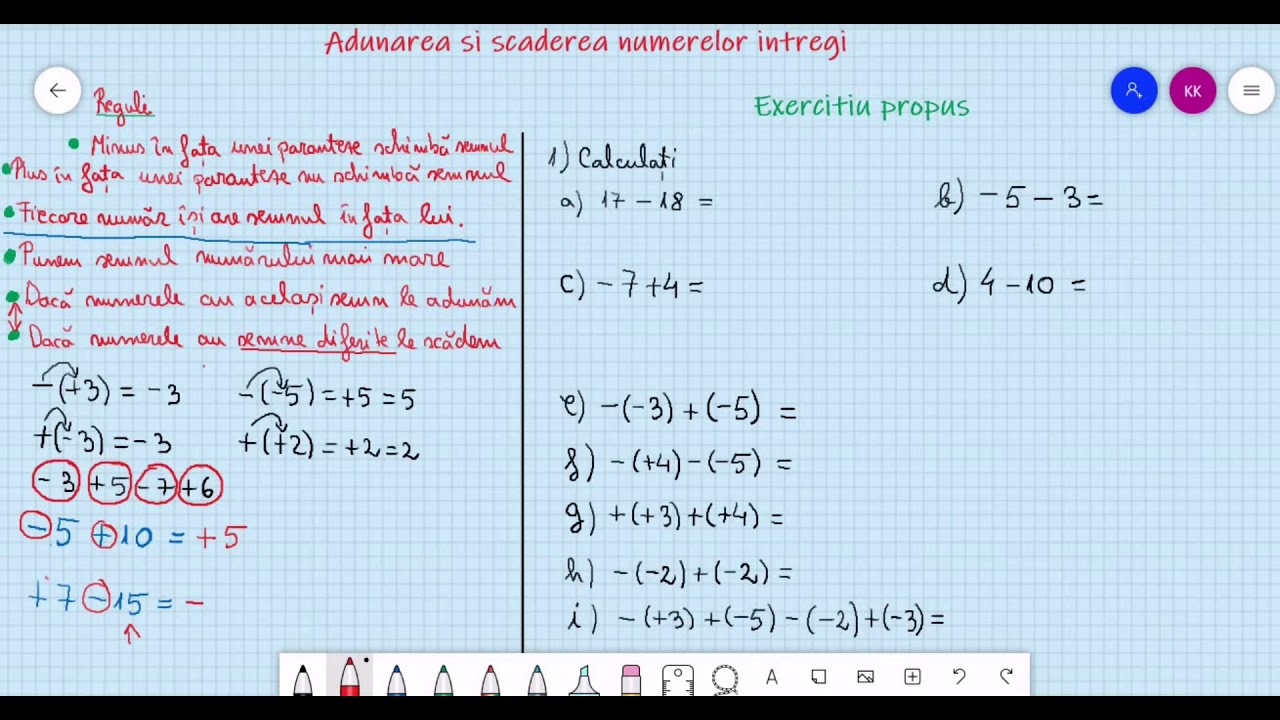 Adunarea si scaderea numerelor intregi
KK
Reguli
Minus în fața unei paranteze schimbă semnul
Plus în fața unei paranteze nu schimbă semnul
Fiecare număr își are semnul în fața lui.
Punem semnul numărului mai mare
Dacă numerele au același semn le adunăm
Dacă numerele au semne diferite le scădem
-(+3) = -3
-(-5) = +5 = 5
+(-3) = -3
+(+2) = +2 = 2
-3 +5 -7 +6
-5 +10 = +5
+7 -15 = -
Exercitiu propus
1) Calculați
a) 17 - 18 =
b) -5 - 3 =
c) -7 + 4 =
d) 4 - 10 =
e) -(-3) + (-5) =
f) -(+4) - (-5) =
g) +(+3) + (+4) =
h) -(-2) + (-2) =
i) -(+3) + (-5) - (-2) + (-3) =
A